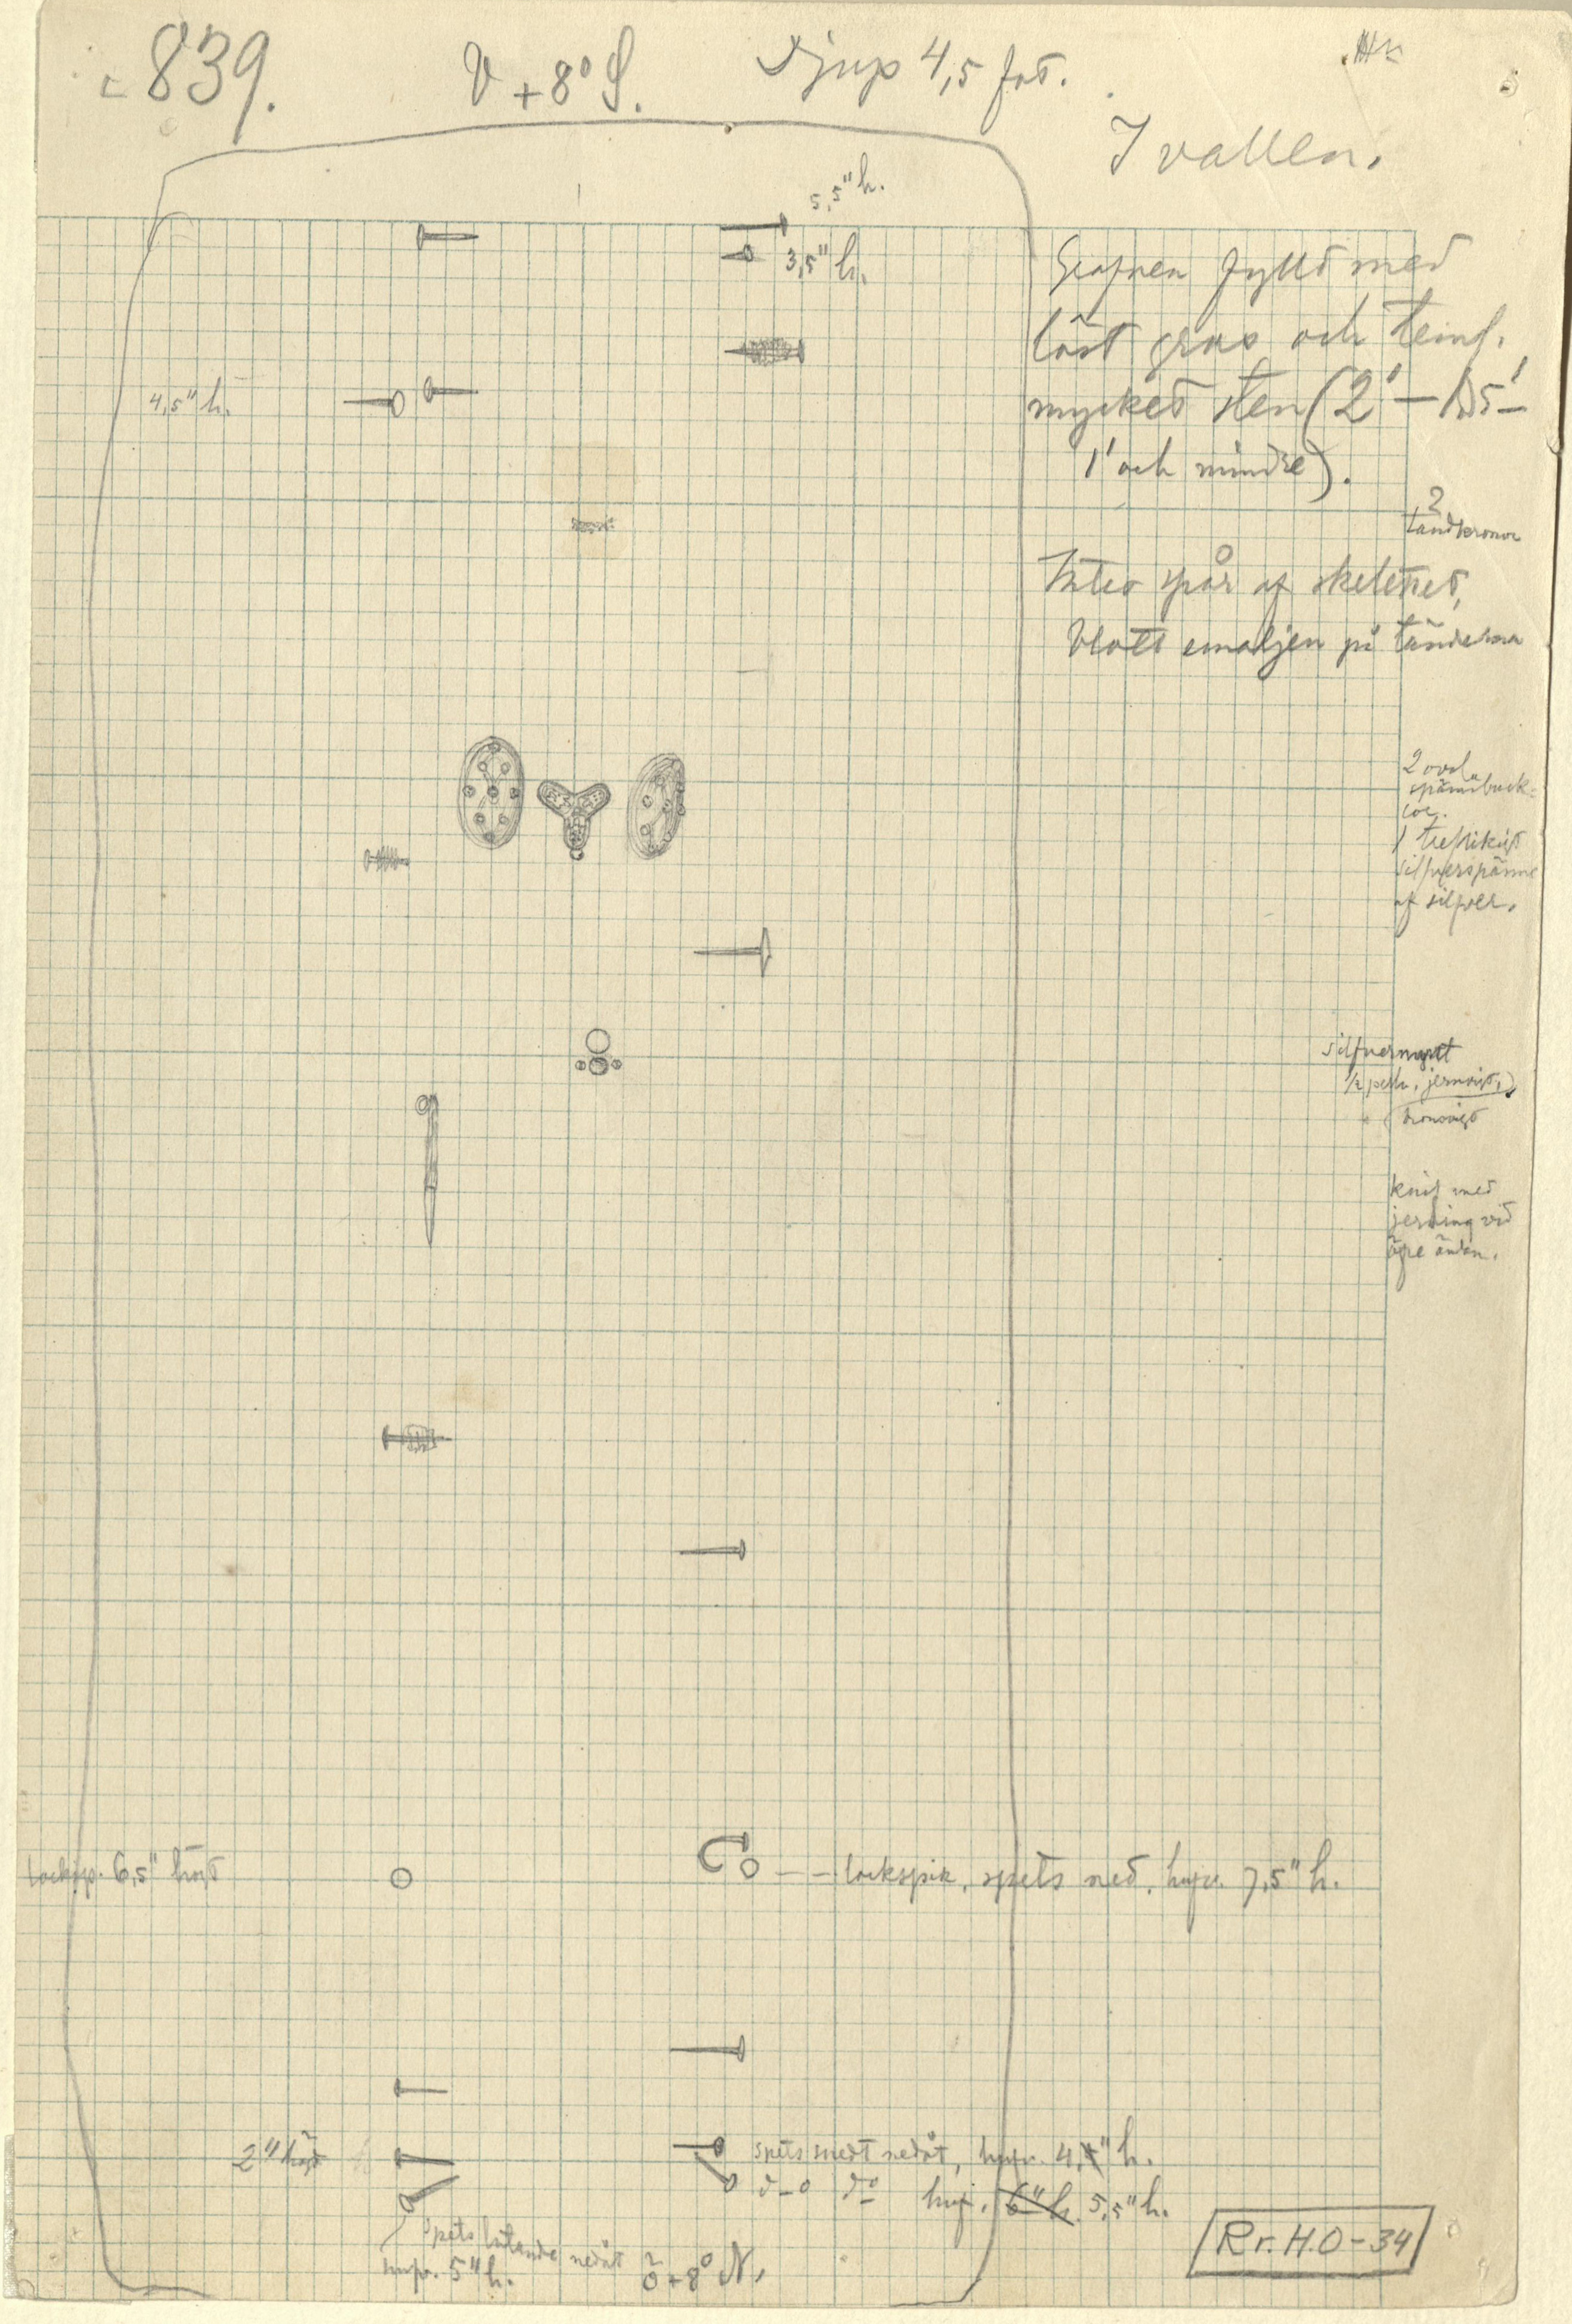 839.
V + 8° S.
Djup 4,5 fot.
I vallen.
5,5" h.
3,5" h.
Grafven fylld med
löst grus och temf.
mycket sten (2' – 1,5' –
1' och mindre).
4,5" h.
2
tandkronor
Intet spår af skelettet,
blott emaljen på tänderna
2 ovala
spännbuck-
lor.
1 treflikigt
silfverspänne
af silfver.
silfvermynt
1/2 perla, jernvigt,
bronsvigt
knif med
jernring vid
öfre ändan.
locksp. 6,5" högt
lockspik, spets ned. hufv. 7,5" h.
2" högt
spets snedt nedåt, hufv. 4," h.
d–o d–o hufv. 6" h. 5,5" h.
spets lutande nedåt
hufv. 5" h.
Ö + 8° N.
Rr. H.O-34